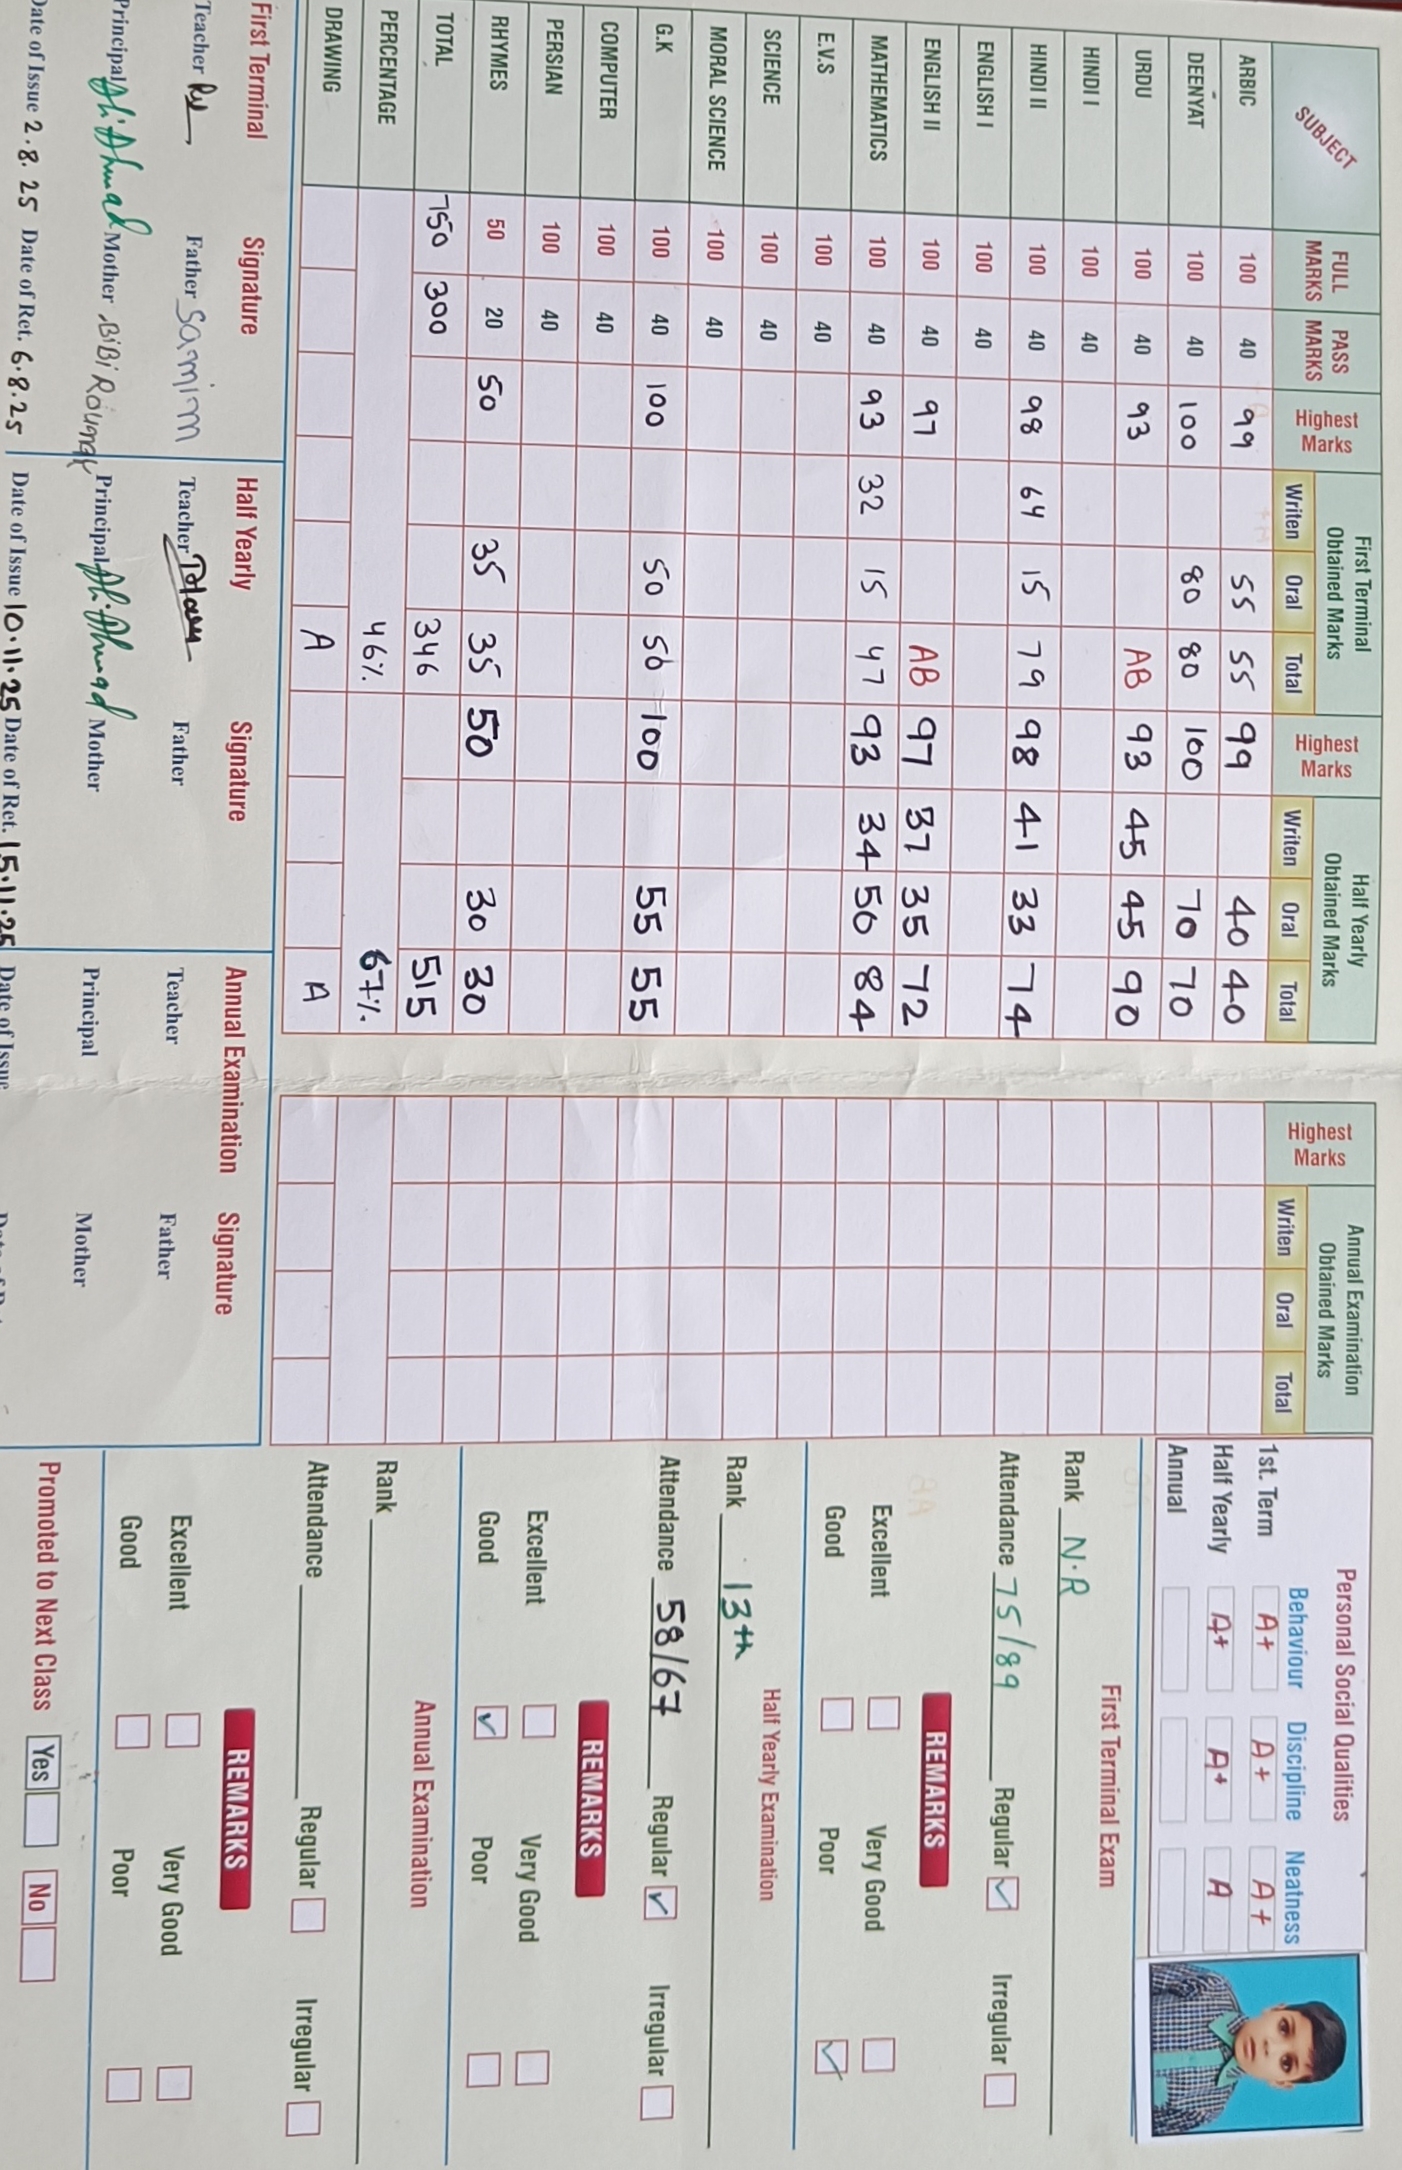 SUBJECT FULL MARKS PASS MARKS Highest Marks First Terminal Obtained Marks Writen Oral Total Highest Marks Half Yearly Obtained Marks Writen Oral Total Highest Marks Annual Examination Obtained Marks Writen Oral Total
ARBIC 100 40 99 55 55 99 40 40
DEENYAT 100 40 100 80 80 100 70 70
URDU 100 40 93 AB 93 45 45 90
HINDI I 100 40
HINDI II 100 40 98 64 15 79 98 41 33 74
ENGLISH I 100 40
ENGLISH II 100 40 97 AB 97 37 35 72
MATHEMATICS 100 40 93 32 15 47 93 34 50 84
E.V.S 100 40
SCIENCE 100 40
MORAL SCIENCE 100 40
G.K 100 40 100 50 50 100 55 55
COMPUTER 100 40
PERSIAN 100 40
RHYMES 50 20 50 35 35 50 30 30
TOTAL 750 300 346 515
PERCENTAGE 46% 67%
DRAWING A A
First Terminal Signature
Teacher Father Samim
Principal Ali Ahmad Mother BiBi
Date of Issue 2.8.25 Date of Ret. 6.8.25
Half Yearly Signature
Teacher Father
Principal Ali Ahmad Mother
Date of Issue 10.11.25 Date of Ret. 15.11.25
Annual Examination Signature
Teacher Father
Principal Mother
Date of Issue
Personal Social Qualities
Behaviour Discipline Neatness
1st. Term A+ A+ A+
Half Yearly A+ A+ A
Annual
First Terminal Exam
Rank N.R
Attendance 75/89 Regular ✓ Irregular
REMARKS
Excellent Very Good
Good Poor ✓
Half Yearly Examination
Rank 13th
Attendance 58/67 Regular ✓ Irregular
REMARKS
Excellent Very Good
Good ✓ Poor
Annual Examination
Rank
Attendance Regular Irregular
REMARKS
Excellent Very Good
Good Poor
Promoted to Next Class Yes No